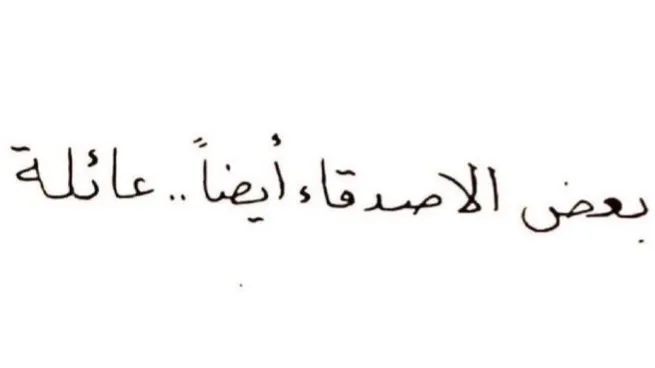 بعض الاصدقاء أيضاً.. عائلة